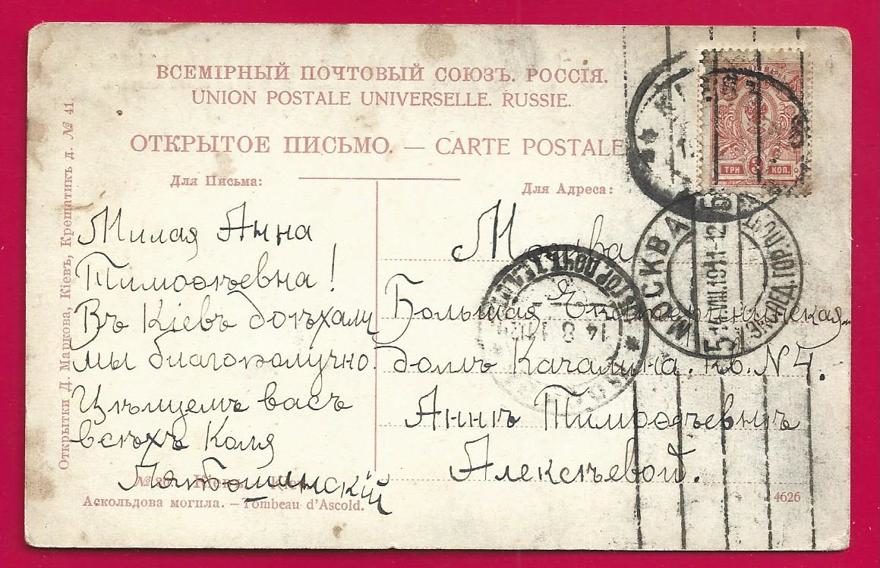 ВСЕМІРНЫЙ ПОЧТОВЫЙ СОЮЗЪ. РОССІЯ.
UNION POSTALE UNIVERSELLE. RUSSIE.
ОТКРЫТОЕ ПИСЬМО. — CARTE POSTALE
Для Письма:
Для Адреса:
Милая Анна
Тимоѳѣевна!
Въ Кіевъ доѣхали
мы благополучно.
Цѣлуемъ васъ
всѣхъ Коля
Москва
Большая
домъ Качалина. кв. N 4.
Аннѣ Тимоѳѣевнѣ
Алексѣевой.
Аскольдова могила. — Tombeau d'Ascold.
4626
Открытки Д. Маркова, Кіевъ, Крещатикъ д. № 41.
ТРИ 3 КОП.
МОСКВА